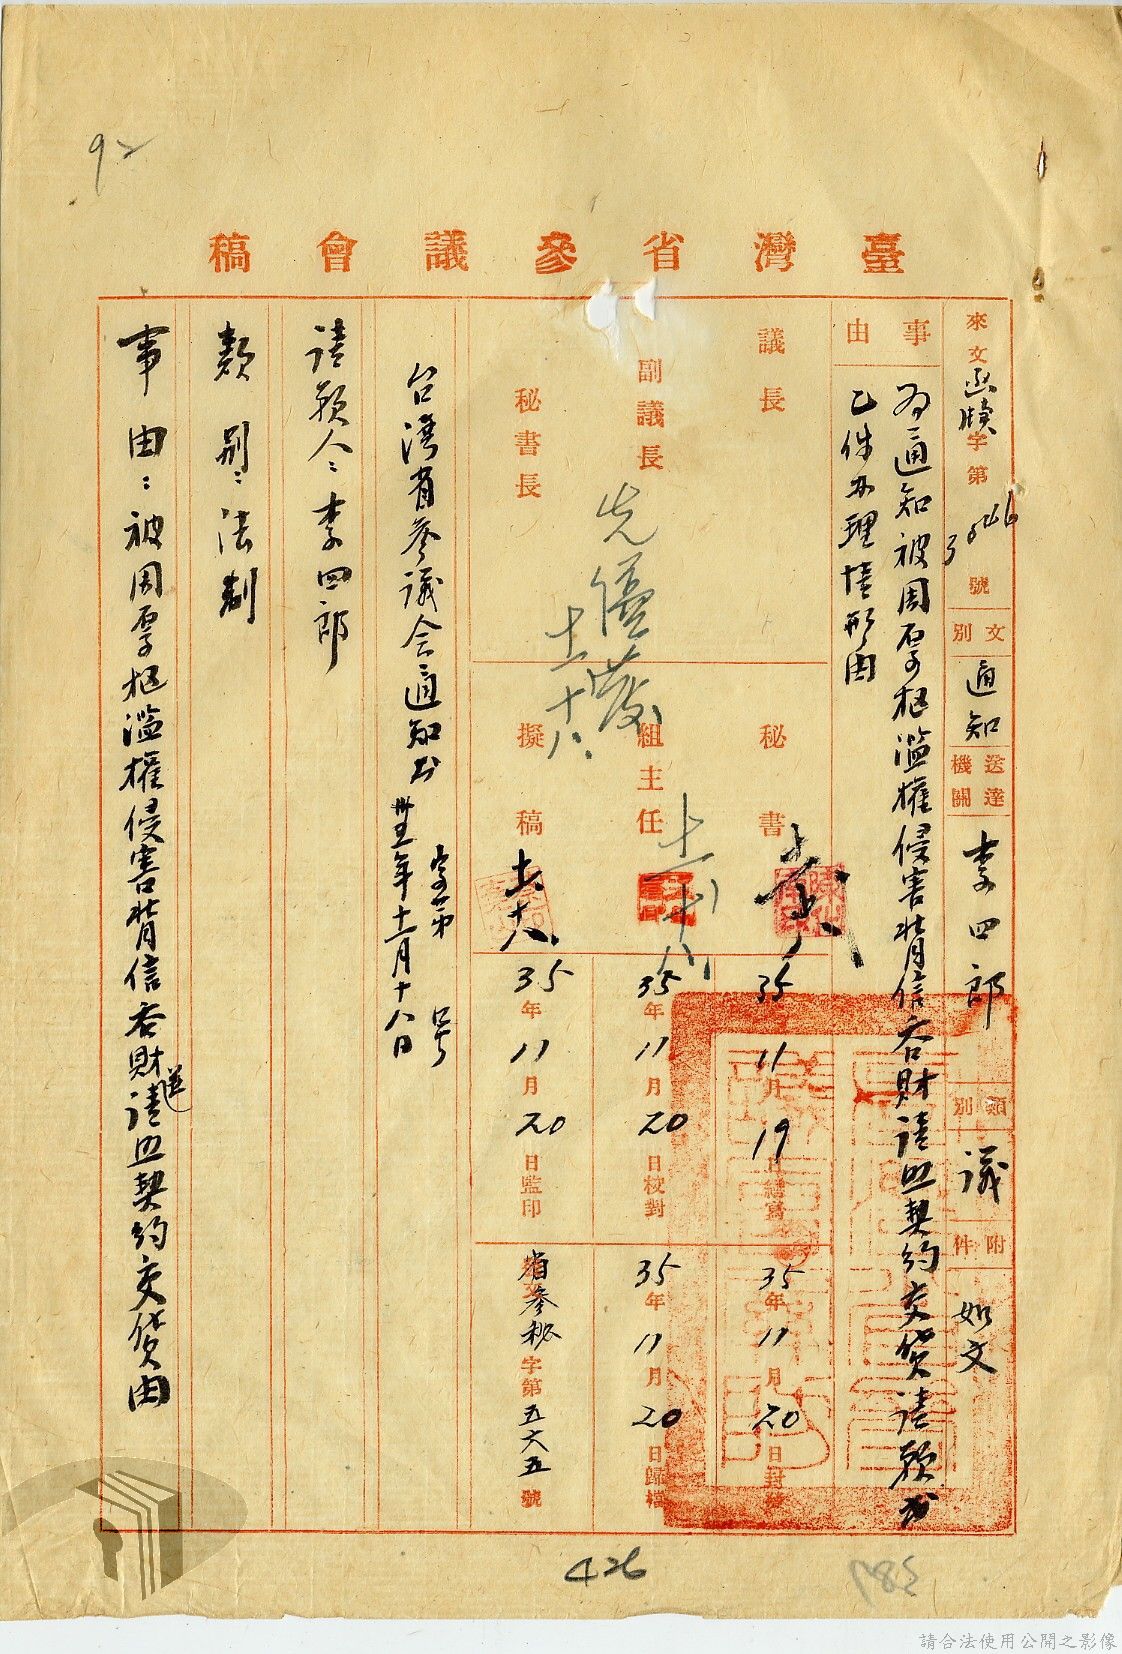 臺灣省參議會稿
來文函牘字第3546號
文別 通知
送達機關 李四郎
類別 議
附件 如文
事由
為通知被周厚樞濫權侵害背信吞財請照契約交貨請願書
乙件办理情形由
議長
副議長
秘書長
先繕發
十一 十八
秘書
組主任
十一 十八
擬稿
十一 十八
35年11月19日繕寫
35年11月20日校對
35年11月20日監印
35年11月20日封發
35年11月20日歸檔
省參秘字第五六五號
台灣省參議会通知书 字第 号
卅五年十一月十八日
請願人：李四郎
類別：法制
事由：被周厚樞濫權侵害背信吞財請照契約交貨由
92
426
請合法使用公開之影像